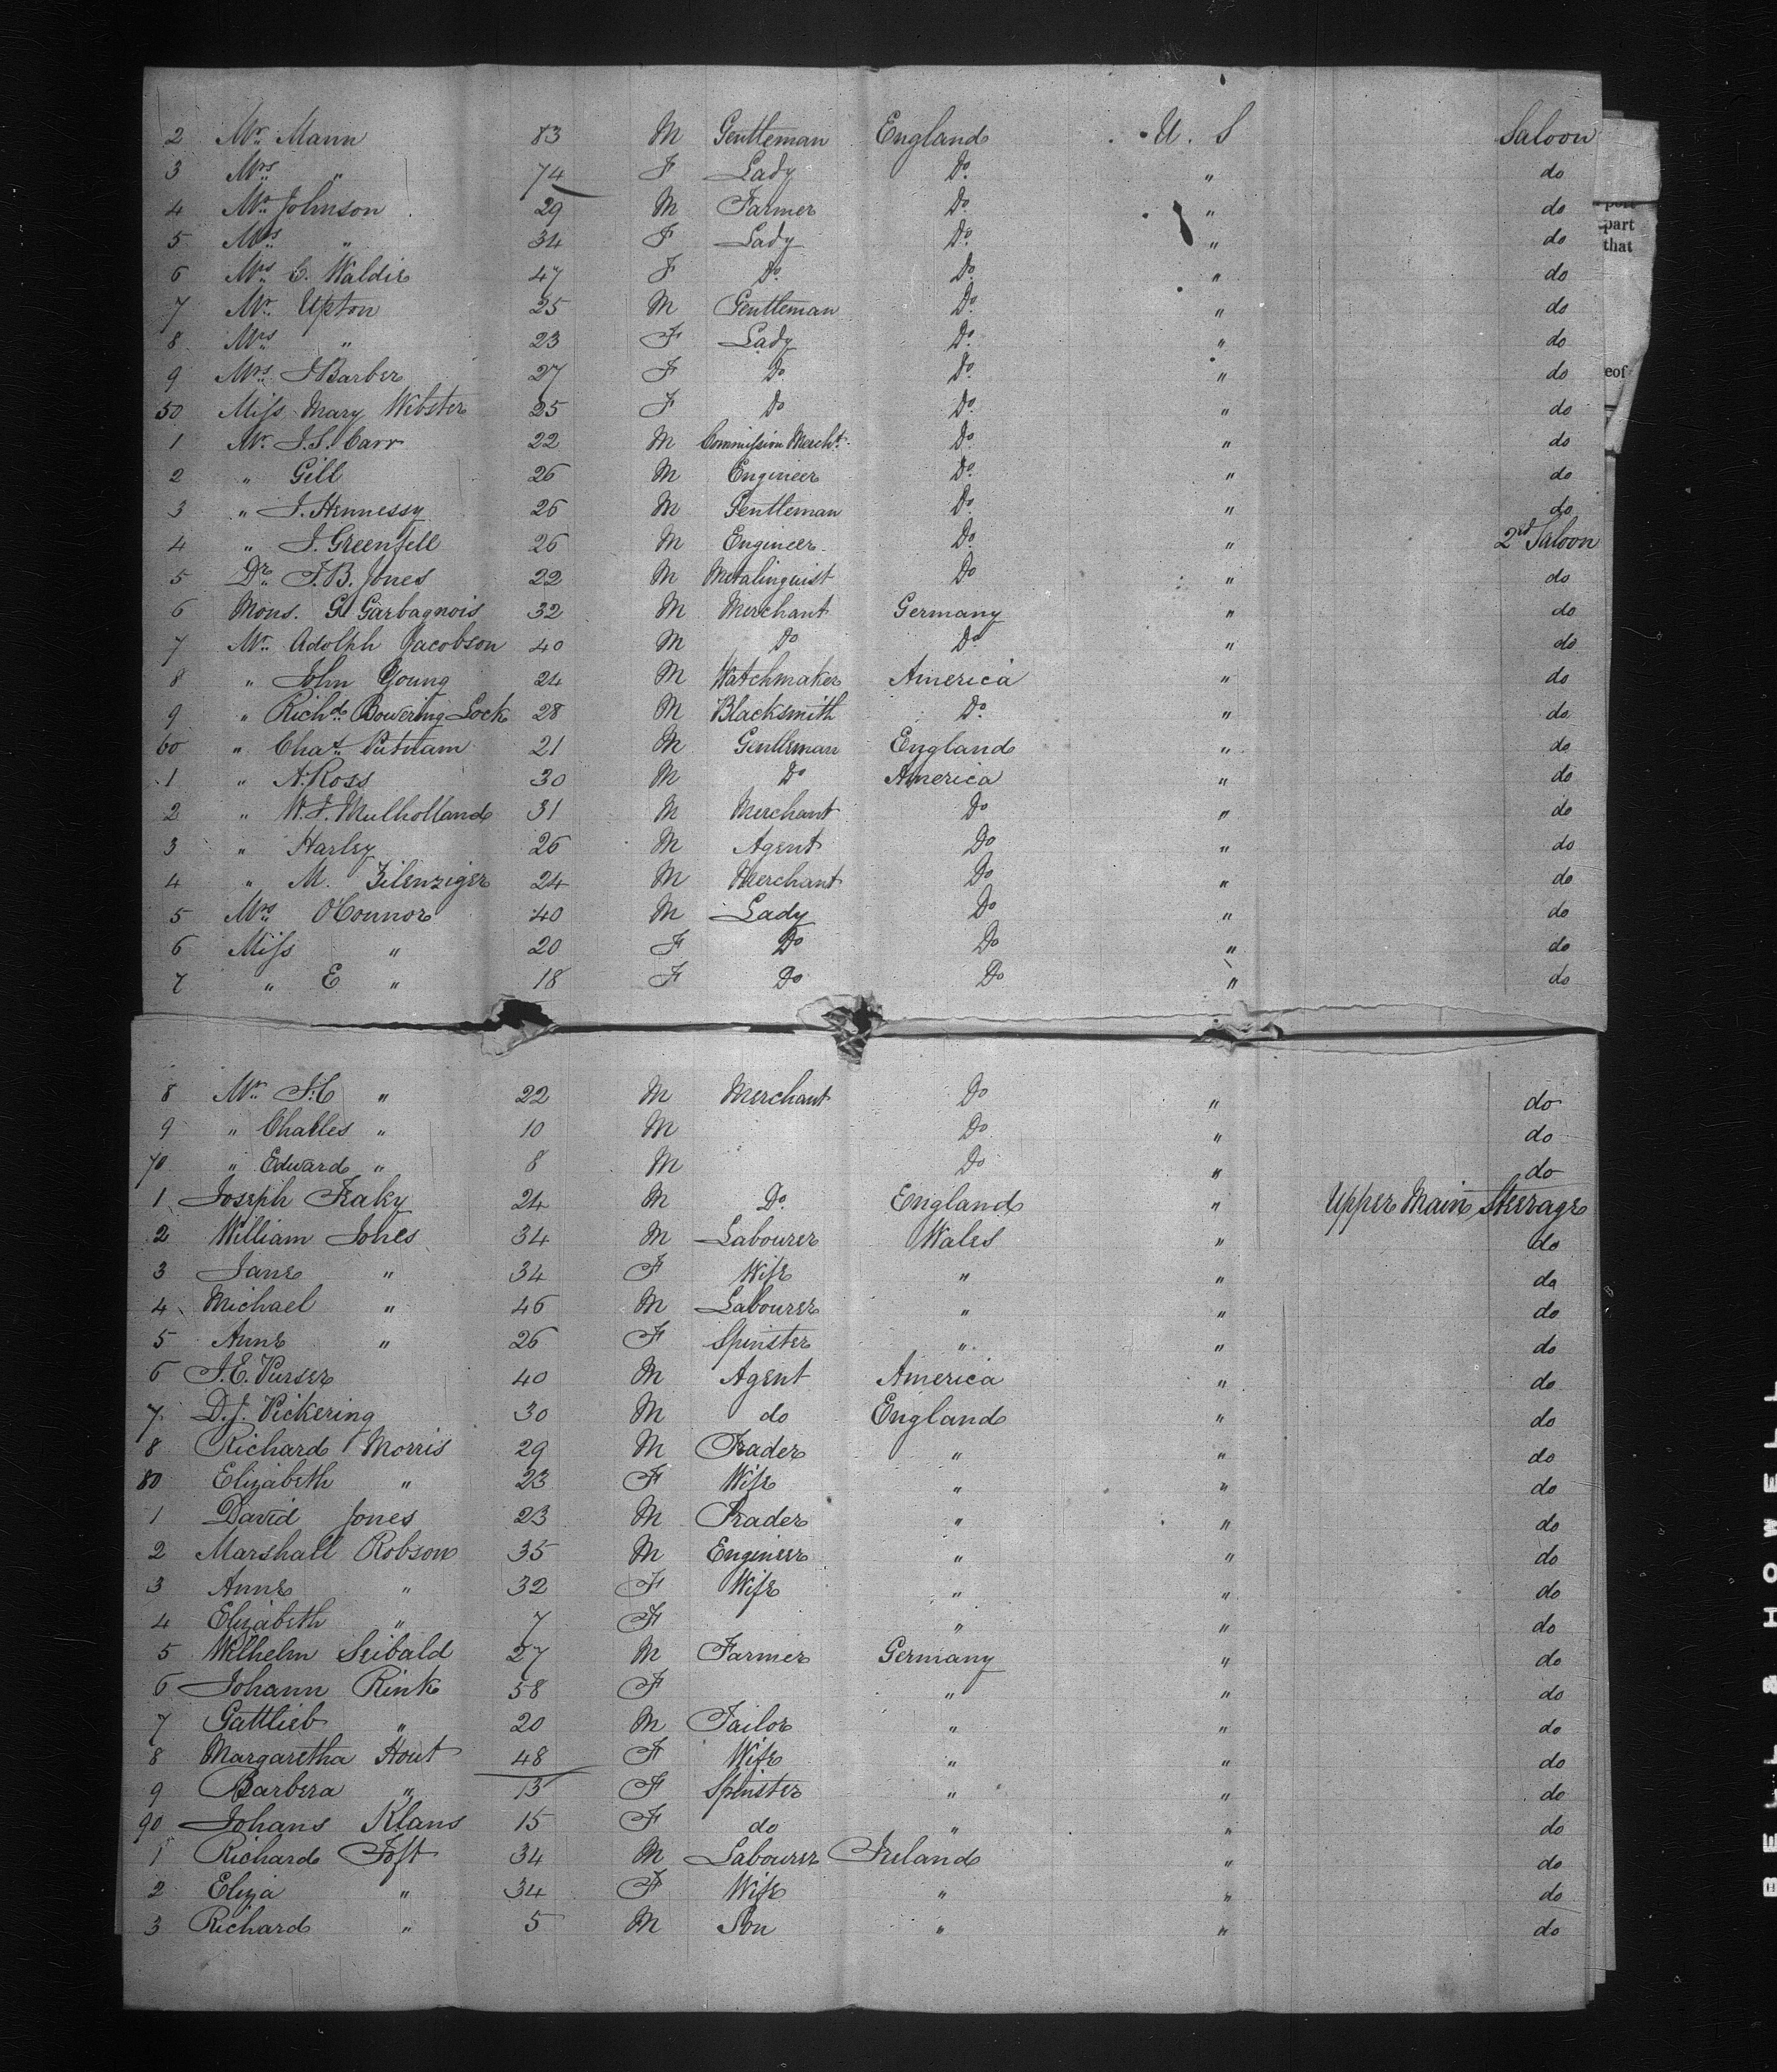 2 Mr. Mann 83 M Gentleman England U. S Saloon
3 Mrs. " 74 F Lady Do. " do
4 Mr. Johnson 29 M Farmer Do. " do
5 Mrs. " 34 F Lady Do. " do
6 Mrs. C. Waldie 47 F Do. Do. " do
7 Mr. Upton 25 M Gentleman Do. " do
8 Mrs. " 23 F Lady Do. " do
9 Mrs. J Barber 27 F Do. Do. " do
50 Miss Mary Webster 25 F Do Do. " do
1 Mr. J.S. Carr 22 M Commission Mercht. Do. " do
2 " Gill 26 M Engineer Do. " do
3 " J. Hennessy 26 M Gentleman Do. " do
4 " J. Greenfell 26 M Engineer Do. " 2nd Saloon
5 Dr. J.B. Jones 22 M Metalinguist Do " do
6 Mons. G. Garbagnois 32 M Merchant Germany " do
7 Mr. Adolph Jacobson 40 M Do Do " do
8 " John Young 24 M Watchmaker America " do
9 " Richd. Bowering Lock 28 M Blacksmith Do. " do
60 " Chas. Putnam 21 M Gentleman England " do
1 " A. Ross 30 M Do America " do
2 " W.J. Mulholland 31 M Merchant Do " do
3 " Harley 26 M Agent Do " do
4 " M. Zilenziger 24 M Merchant Do " do
5 Mrs. O'Connor 40 M Lady Do " do
6 Miss " 20 F Do Do " do
7 " E " 18 F Do Do " do
8 Mr. J.C " 22 M Merchant Do " do
9 " Charles " 10 M Do " do
70 " Edward " 8 M Do " do
1 Joseph Fraky 24 M Do. England " Upper Main Steerage
2 William Jones 34 M Labourer Wales " do
3 Jane " 34 F Wife " " do
4 Michael " 46 M Labourer " " do
5 Anne " 26 F Spinster " " do
6 J.E. Purser 40 M Agent America " do
7 D.J. Pickering 30 M do England " do
8 Richard Morris 29 M Trader " " do
80 Elizabeth " 23 F Wife " " do
1 David Jones 23 M Trader " " do
2 Marshall Robson 35 M Engineer " " do
3 Anne " 32 F Wife " " do
4 Elizabeth " 7 F " " do
5 Wilhelm Seibald 27 M Farmer Germany " do
6 Johann Rink 58 F " " do
7 Gattlieb " 20 M Tailor " " do
8 Margaretha Hout 48 F Wife " " do
9 Barbera " 13 F Spinster " " do
90 Johans Klans 15 F do " " do
1 Richard Toft 34 M Labourer Ireland " do
2 Eliza " 34 F Wife " " do
3 Richard " 5 M Son " " do
part
that
eof
BELL & HOWELL